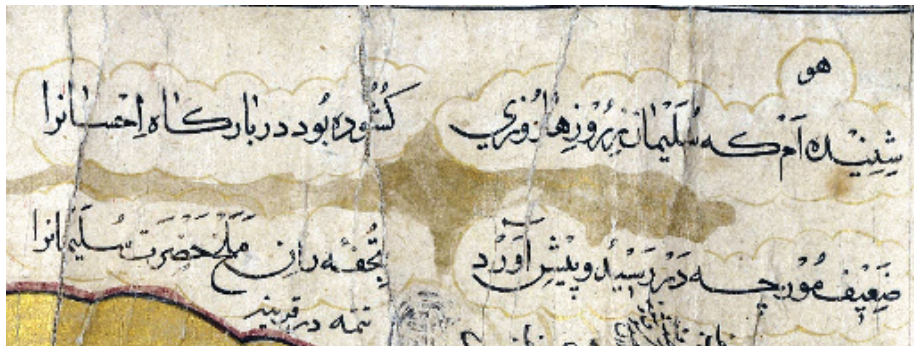 هو
شنیده‌ام که سلیمان بروز هاژوزی کشوده بود در بارکاه احسانرا
ضعیف مورچه در رسید و پیش آورد تحفه ران ملخ حضرت سلیمانرا
تتمه در قرینه